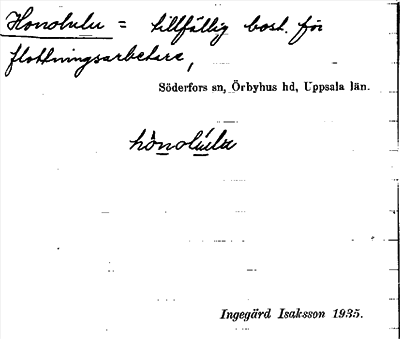 Honolulu = tillfällig bost. för
flottningsarbetare,
Söderfors sn, Örbyhus hd, Uppsala län.
Ingegärd Isaksson 1935.